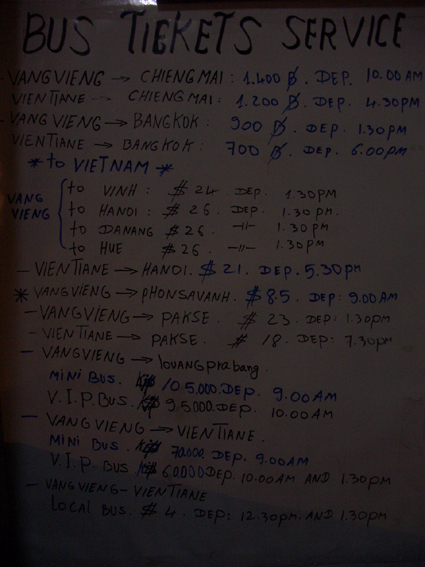 BUS TICKETS SERVICE
- VANGVIENG → CHIENGMAI : 1.400 ฿. DEP. 10.00 AM
VIENTIANE → CHIENGMAI : 1.200 ฿. DEP. 4.30PM
- VANGVIENG → BANGKOK : 900 ฿. DEP. 1.30PM
VIENTIANE → BANGKOK : 700 ฿. DEP. 6.00PM
* to VIETNAM *
VANG VIENG
to VINH : $ 24 . DEP. 1.30PM
to HANOI : $ 26 . DEP. 1.30PM.
to DANANG $ 26 . -//- 1.30PM
to HUE $ 26 . -//- 1.30PM
- VIENTIANE → HANOI. $ 21. DEP. 5.30pm
* VANGVIENG → PHONSAVANH. $ 8.5. DEP: 9.00AM
- VANGVIENG → PAKSE. $ 23. DEP: 1.30PM
- VIENTIANE → PAKSE. $ 18. DEP: 7.30PM
- VANGVIENG → louangprabang.
MINI BUS. 105.000. DEP. 9.00AM
V.I.P. BUS. 95.000. DEP. 10.00AM
- VANGVIENG → VIENTIANE.
MINI BUS. 70.000. DEP. 9.00AM
V.I.P BUS 60.000 DEP. 10.00AM AND 1.30PM
- VANGVIENG - VIENTIANE
LOCAL BUS. $ 4. DEP: 12.30pm. AND 1.30PM.